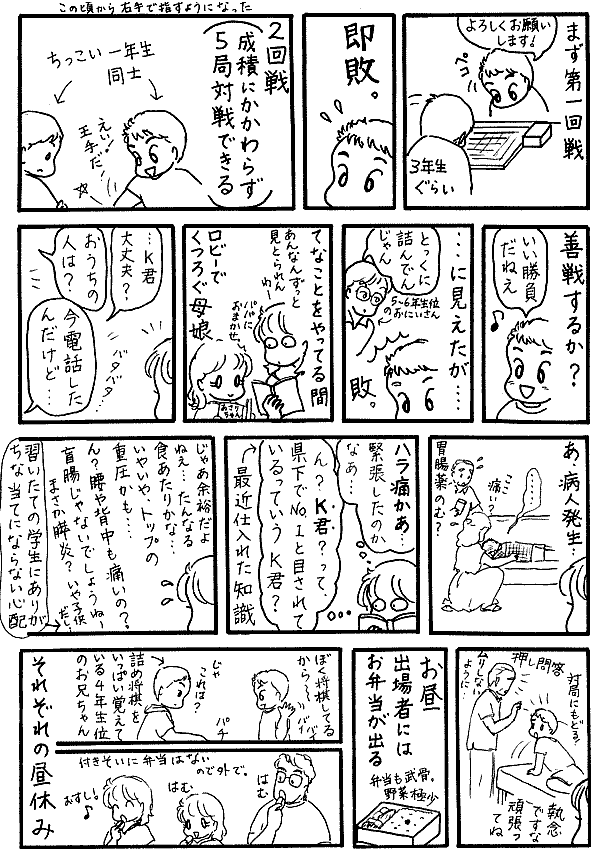 この頃から右手で指すようになった
まず第一回戦
よろしくお願い
します!
3年生
ぐらい
即敗。
2回戦
成績にかかわらず
5局対戦できる
ちっこい一年生
同士
えい!
王手だ!
善戦するか?
いい勝負
だねえ
…に見えたが…
とっくに
詰んでん
じゃん
5~6年生位
のおにいさん
敗。
てなことをやってる間
あんなんずっと
見とられん
わー
パパに
おまかせ
ロビーで
くつろぐ母・娘
あさり
ちゃん
…K君
大丈夫?
おうちの
人は?
バタバタ…
今電話した
んだけど…
あ、病人発生…
ここ
痛い?
……
胃腸薬のむ?
ハラ痛かあ?
緊張したのか
なあ…
ん?K君?って、
県下でNo.1と目されて
いるっていうK君?
↑最近仕入れた知識
じゃあ余裕だよ
ねえ…たんなる
食あたりかな…
いやいや、トップの
重圧かも…
ん?腰や背中も痛いの?
盲腸じゃないでしょうね~
まさか膵炎?いや子供
だし
習いたての学生にありが
ちな当てにならない心配
押し問答
対局にもどる!
ムリしない
ように…
執念
ですな
頑張っ
てね
お昼
出場者には
お弁当が出る
弁当も武骨。
野菜極少
ぼく将棋してる
から~
バイバイ
じゃ
これは?
パチ
詰め将棋を
いっぱい覚えて
いる4年生位
のお兄ちゃん
付きそいに弁当はない
ので外で。
はむ
はむ
おすし!
それぞれの昼休み